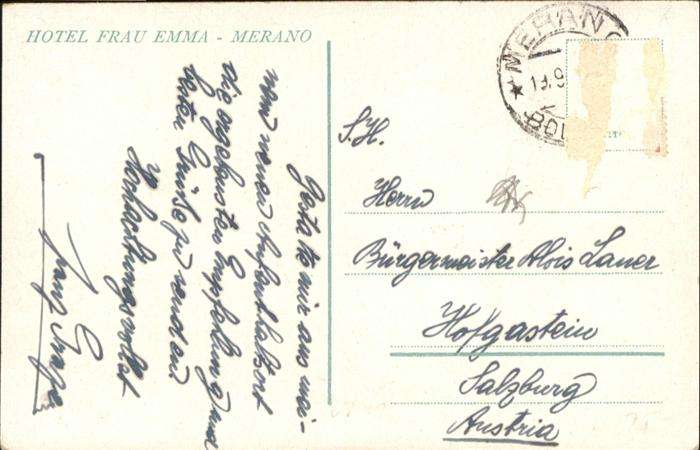 HOTEL FRAU EMMA - MERANO
MERAN
19.9
BOL
Gestatte mir aus mei-
nem neuen Aufenthaltsort
die ergebensten Empfehlung und
besten Grüße zu senden
Hochachtungsvollst
Franz
S.H.
Herrn
Bürgermeister Alois Lauer
Hofgastein
Salzburg
Austria